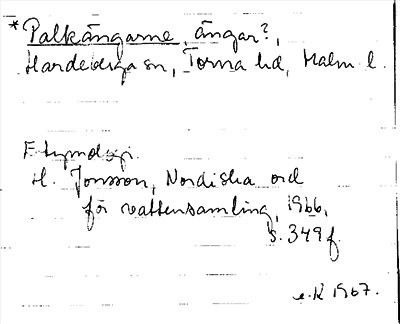 *Palkängarne, ängar?,
Hardeberga sn, Torna hd, Malm. l.
Etymologi.
H. Jonsson, Nordiska ord
för vattensamling, 1966,
s. 349 f.
e.k 1967.